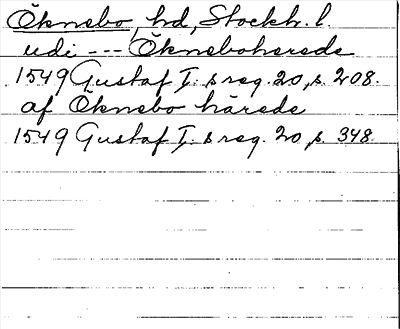 Öknebo, hd, Stockh. l.
udi --- Ökneboherede
1549 Gustaf I:s reg. 20, s. 208.
af Öknebo härede
1549 Gustaf I:s reg. 20, s. 348.